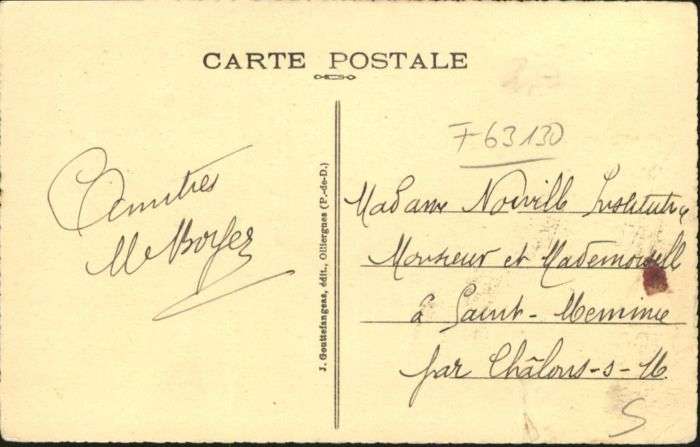 CARTE POSTALE
F 63130
Amitiés
M Boyer
J. Gouttefangeas, édit., Olliergues (P.-de-D.)
Madame Institutrice
Monsieur et Mademoiselle
à Saint-Memmie
par Châlons-s-M
S